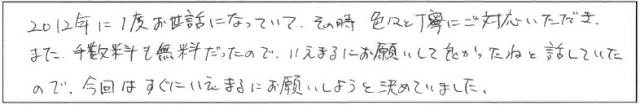 2012年に1度お世話になっていて、その時 色々と丁寧にご対応いただき、
また、手数料も無料だったので、いえまるにお願いして良かったねと話していた
ので、今回はすぐにいえまるにお願いしようと決めていました。